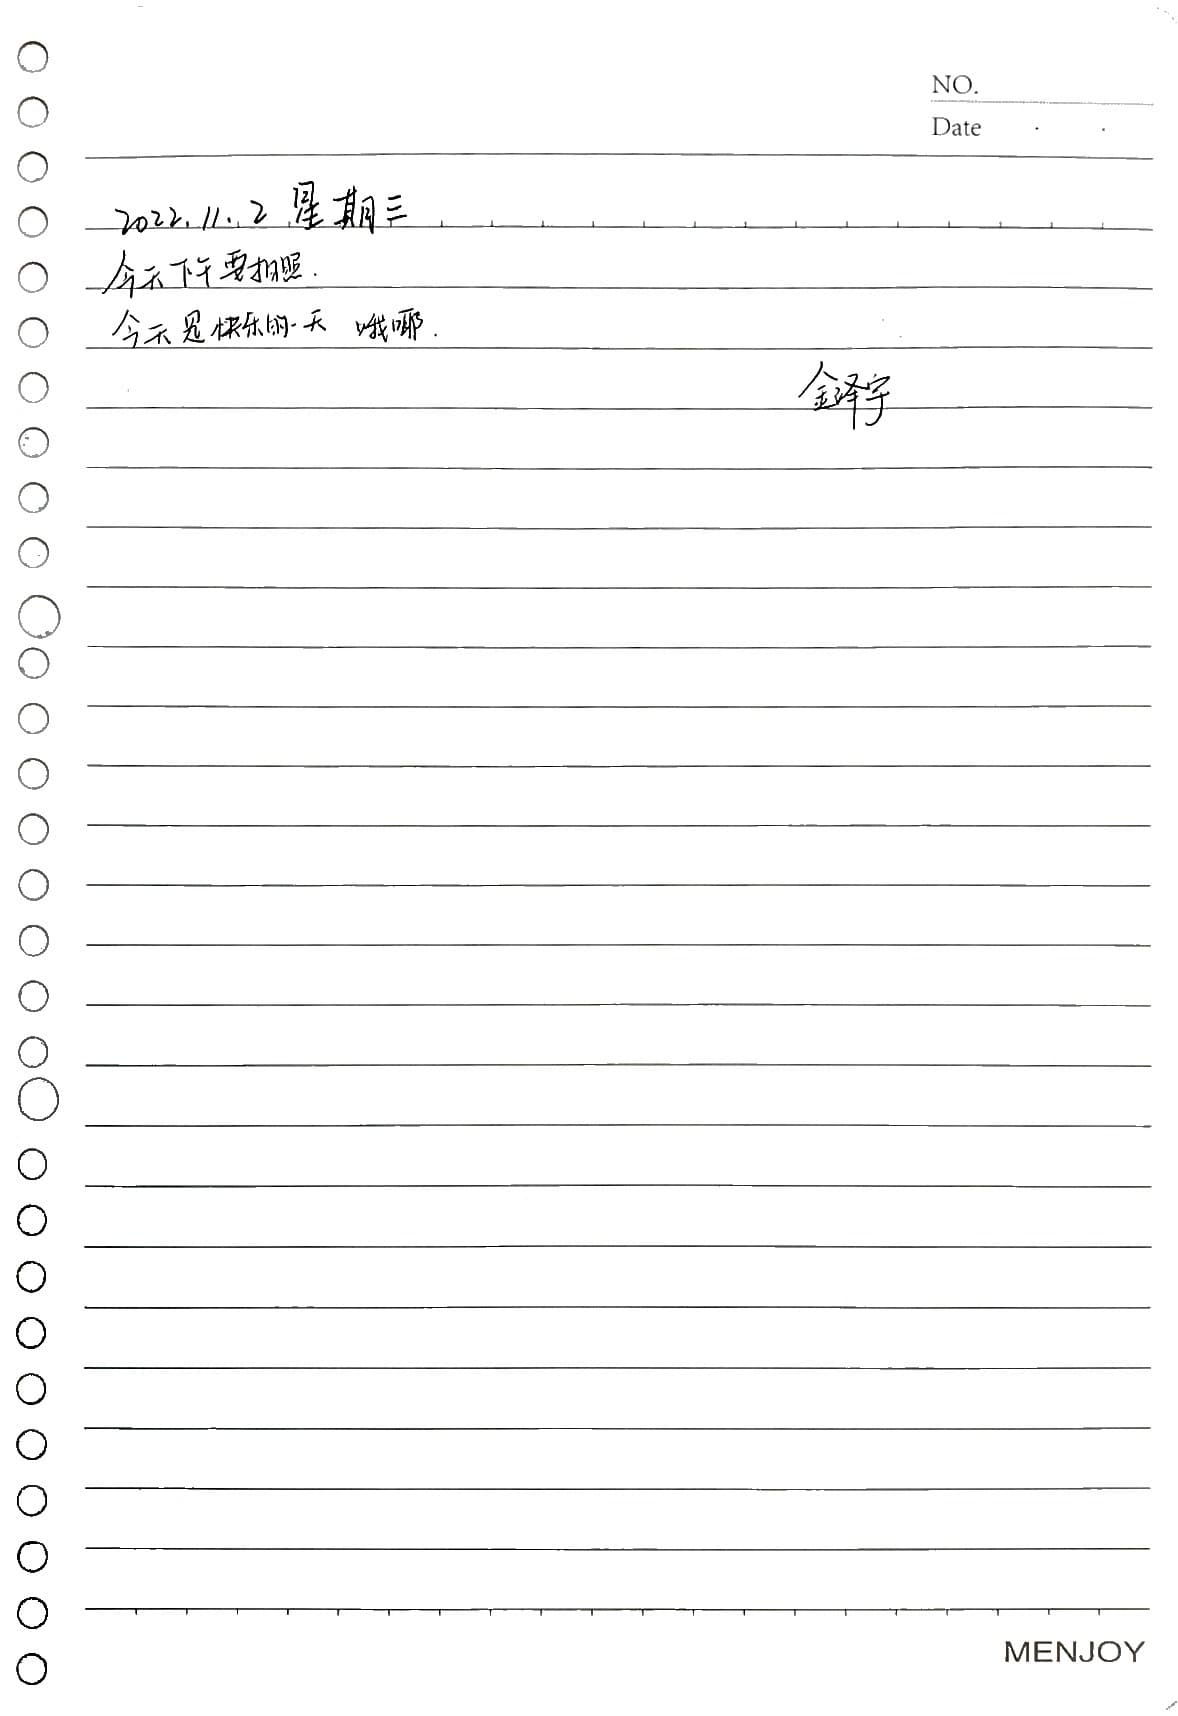 NO.
Date . .
2022.11.2 星期三
今天下午要拍照.
今天是快乐的一天 哦耶.
金泽宇
MENJOY